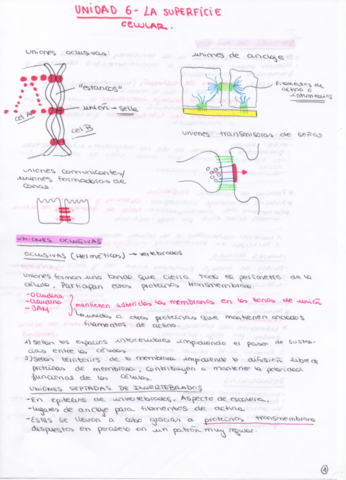 UNIDAD 6 - LA SUPERFICIE
CELULAR.
UNIONES OCLUSIVAS:
"estancos"
unión → sella
cel A
cel B
UNIONES de anclaje
Filamentos de
actina o
intermedios
UNIONES transmisoras de señales
UNIONES comunicantes/
uniones formadoras de
canal.
UNIONES OCLUSIVAS
OCLUSIVAS (Herméticas) → vertebrados
Uniones forman una banda que cierra todo el perímetro de la
célula. Participan estas proteínas transmembrana:
- Ocludina
- Claudina
- JAM
mantienen adheridas las membranas en las zonas de unión
unidas a otras proteínas que mantienen anclados
filamentos de actina.
1) Sellan los espacios intercelulares impidiendo el paso de sustan
cias entre la células
2) Sellan territorios de la membrana impidiendo la difusión libre de
proteínas de membrana, contribuyen a mantener la polaridad
funcional de las células.
UNIONES SEPTADAS DE INVERTEBRADOS
- En epitelios de invertebrados. Aspecto de escalera,
- lugares de anclaje para filamentos de actina.
- Estas se llevan a cabo gracias a proteínas transmembrana
dispuestas en paralelo en un patrón muy regular.
1